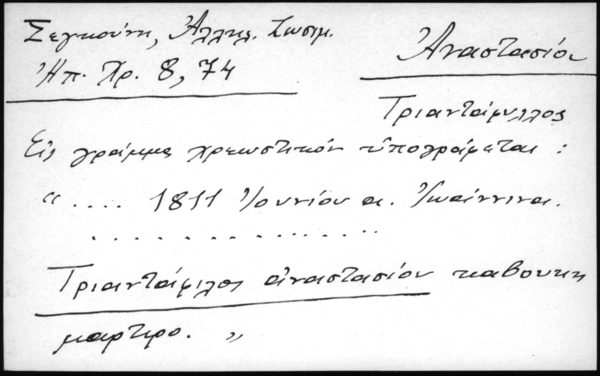 Σεγκούνη, Ἀλληλ. Ζωσιμ.
Ἠπ. Χρ. 8, 74
Ἀναστασίου
Τριαντάφυλλος
Εἰς γράμμα χρεωστικόν ὑπογράφεται :
" .... 1811 Ἰουνίου α. Ἰωάννινα.
. . . . . . . . . . . . . .
Τριαντάφιλος ἀναστασίου καβουκη
μαρτιρο. "